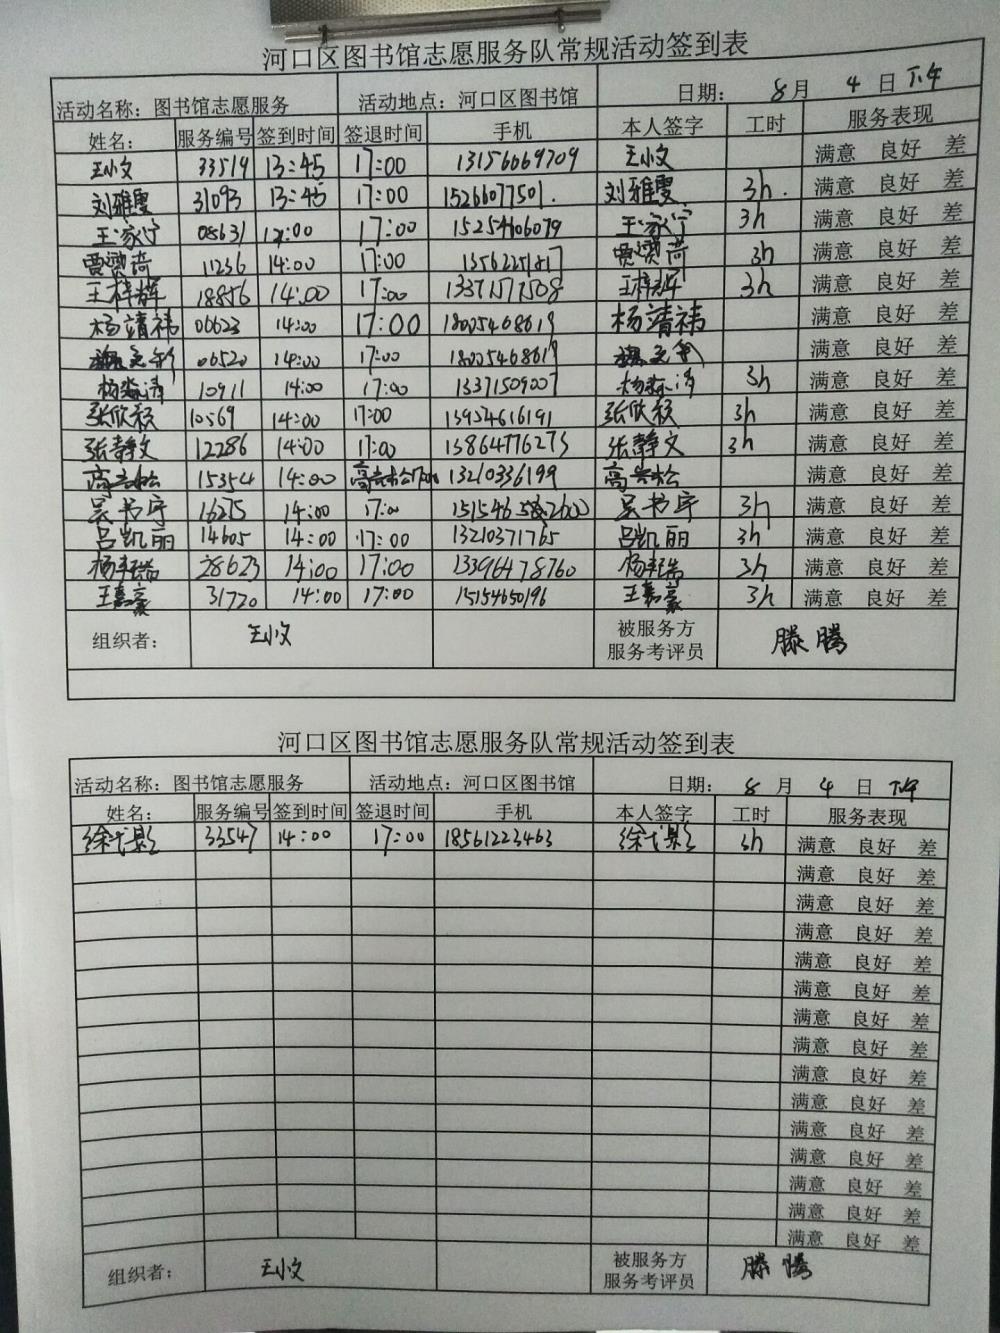 河口区图书馆志愿服务队常规活动签到表
活动名称：图书馆志愿服务 活动地点：河口区图书馆 日期： 8月 4日 下午
姓名： 服务编号 签到时间 签退时间 手机 本人签字 工时 服务表现
王小文 33519 13:45 17:00 13156069709 王小文 满意 良好 差
刘雅雯 31093 13:45 17:00 15266077501. 刘雅雯 3h. 满意 良好 差
王家宁 08631 17:00 15254606079 王家宁 3h 满意 良好 差
11236 14:00 17:00 3h 满意 良好 差
王梓辉 18856 14:00 17:00 13371577508 王梓辉 3h 满意 良好 差
杨靖祎 06623 14:00 17:00 18005468619 杨靖祎 满意 良好 差
06520 14:00 17:00 18005468619 满意 良好 差
杨淼清 10911 14:00 17:00 13371509007 杨淼清 3h 满意 良好 差
张欣颖 10569 14:00 17:00 13954616191 张欣颖 3h 满意 良好 差
张静文 12286 14:00 17:00 13864776275 张静文 3h 满意 良好 差
15354 14:00 13210336199 满意 良好 差
吴书宇 16215 14:00 17:00 吴书宇 3h 满意 良好 差
吕凯丽 14605 14:00 17:00 13210371765 吕凯丽 3h 满意 良好 差
28623 14:00 17:00 13396478760 3h 满意 良好 差
王嘉豪 31720 14:00 17:00 15154650196 王嘉豪 3h 满意 良好 差
组织者： 王小文 被服务方 滕腾
服务考评员
河口区图书馆志愿服务队常规活动签到表
活动名称：图书馆志愿服务 活动地点：河口区图书馆 日期： 8月 4日 下午
姓名： 服务编号 签到时间 签退时间 手机 本人签字 工时 服务表现
33547 14:00 17:00 18561223463 3h 满意 良好 差
满意 良好 差
满意 良好 差
满意 良好 差
满意 良好 差
满意 良好 差
满意 良好 差
满意 良好 差
满意 良好 差
满意 良好 差
满意 良好 差
满意 良好 差
满意 良好 差
满意 良好 差
满意 良好 差
组织者： 王小文 被服务方 滕腾
服务考评员